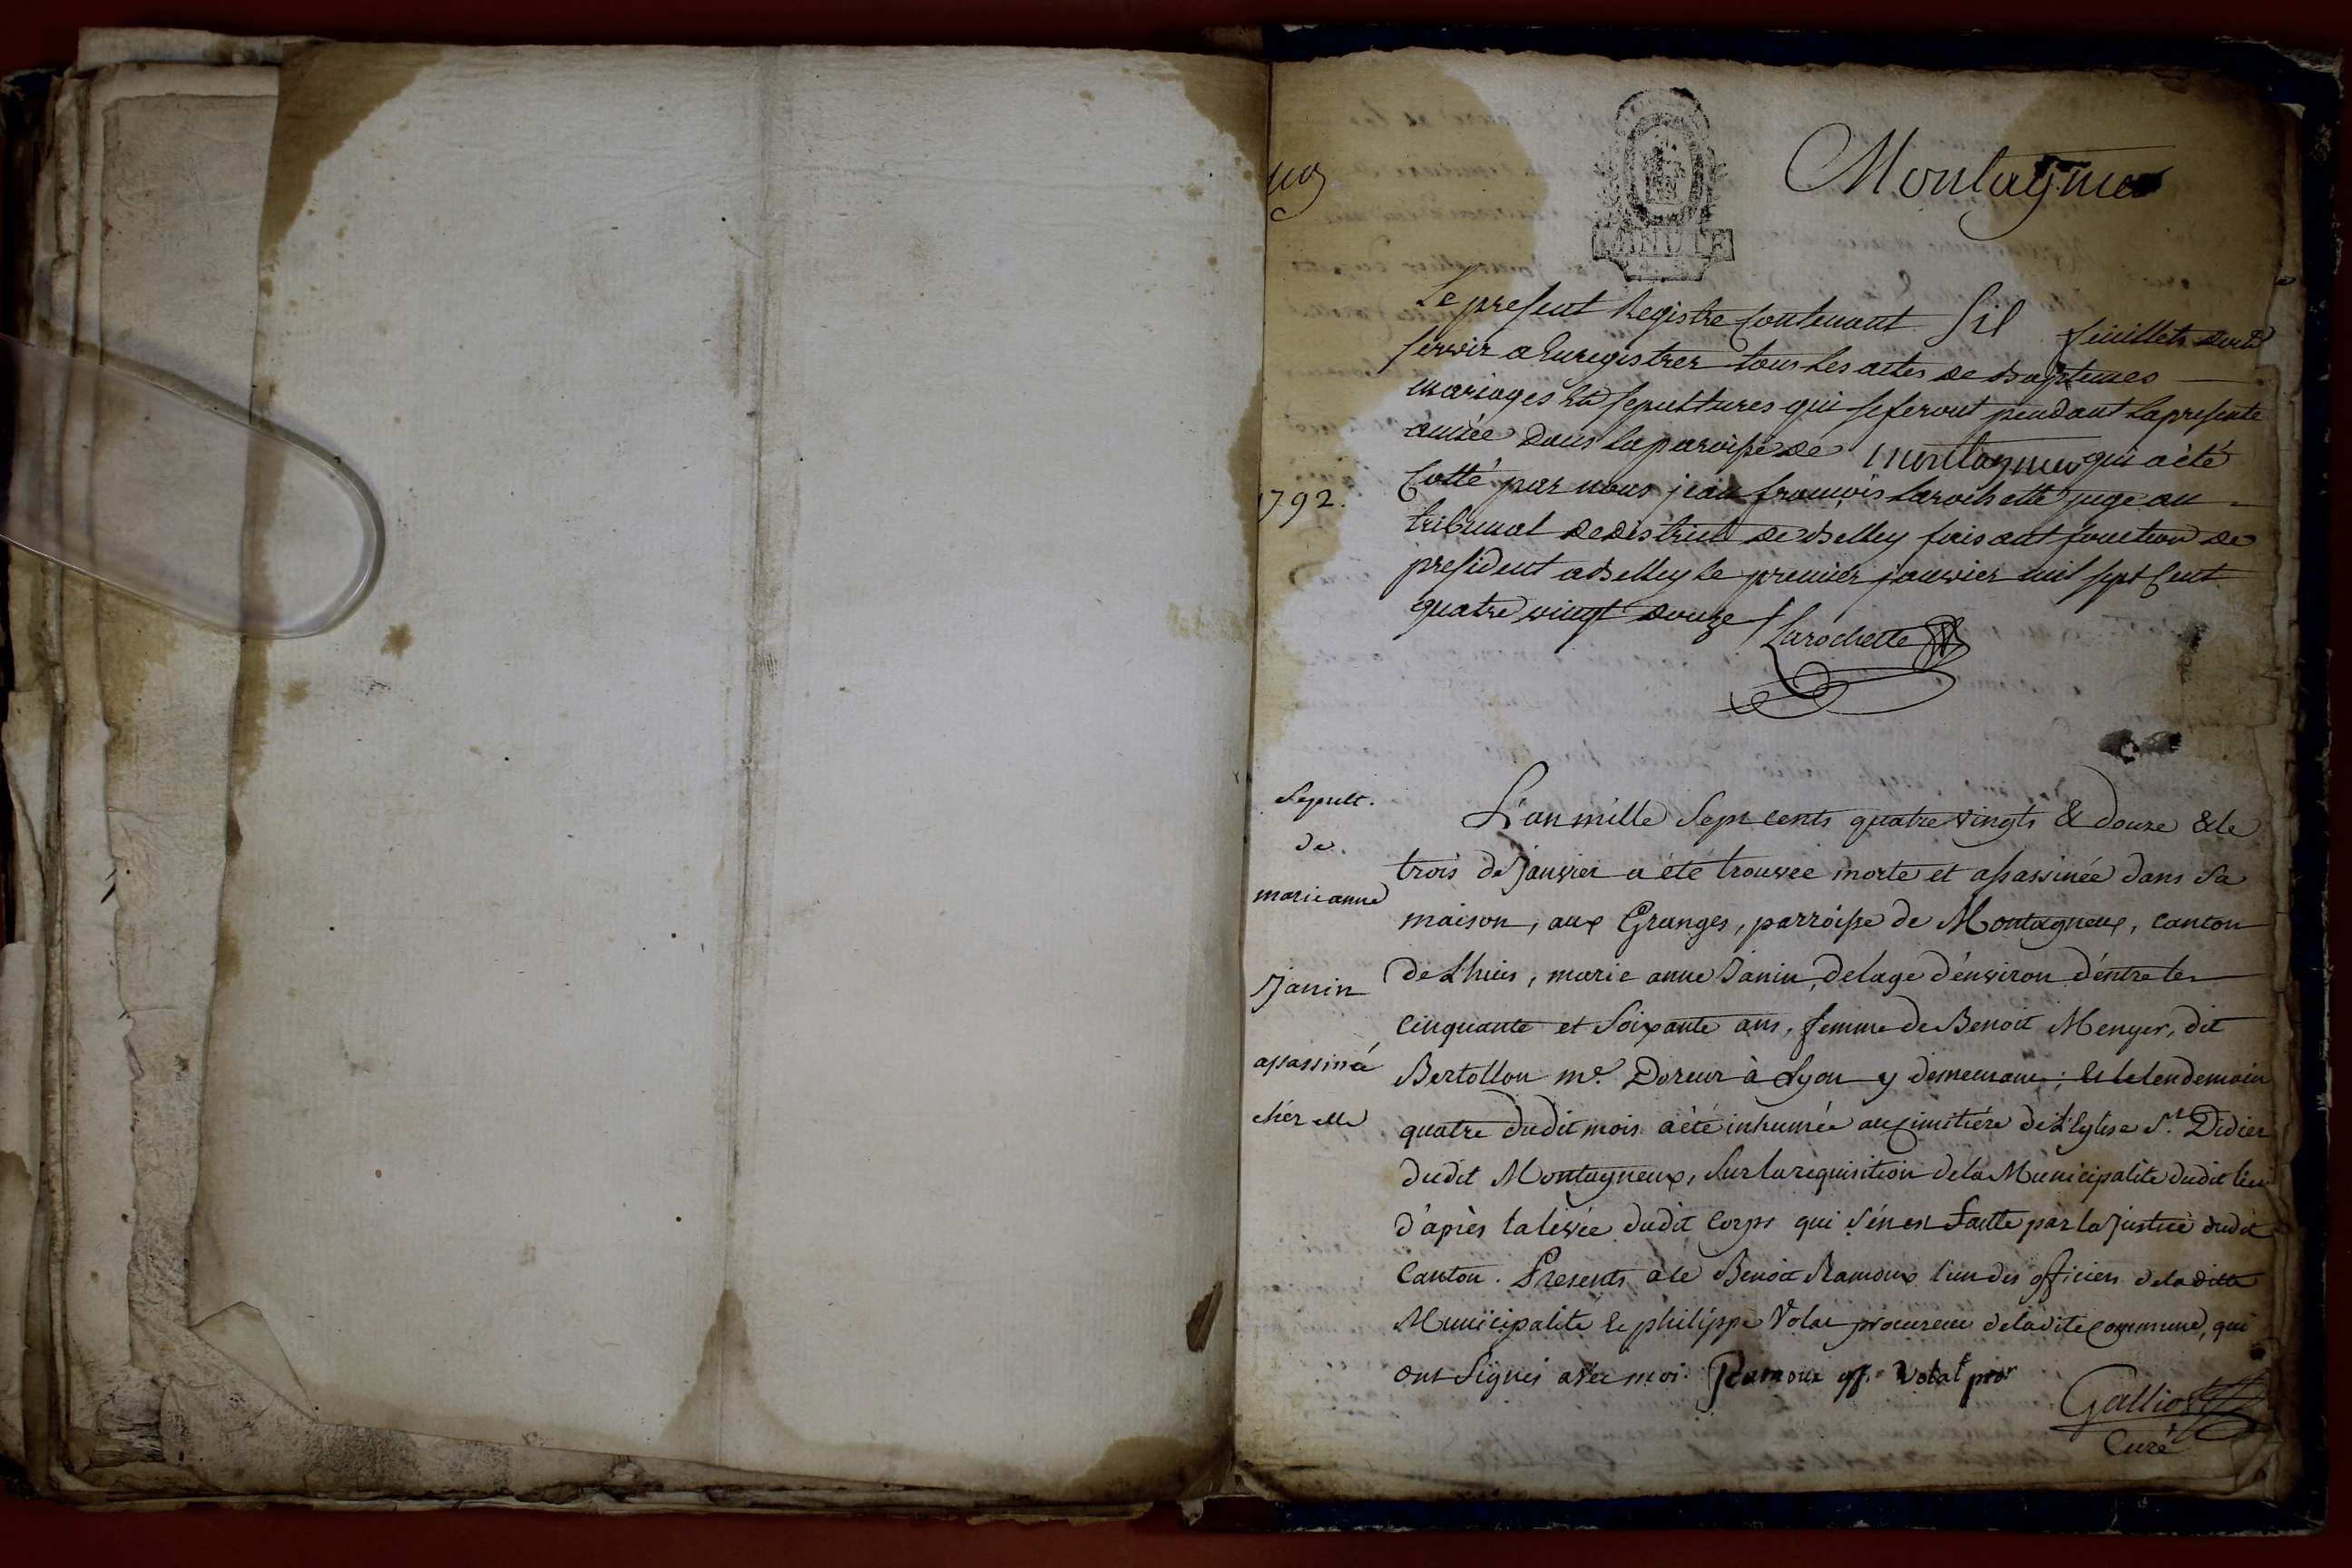 Montagneu
MINUTE
Le present Registre Contenant Six feuillets dub
servir a Enregistrer tous les actes de Baptemes
mariages et sepultures qui se feront pendant la presente
année dans la paroisse de montagneu qui a été
1792.
Cotté par nous jean françois Larochette juge au
tribunal de district de Belley faisant fonction de
president a Belley le premier janvier mil sept Cent
quatre vingt douze
Larochette
Sepult.
de
marie anne
Janin
assassinée
chéz elle
L'an mille Sept cents quatre vingts & douze & le
trois de Janvier a été trouvée morte et assassinée dans sa
maison, aux Granges, parroisse de Montagneux, canton
de Lhuis, marie anne Janin, de lage d'environ d'entre les
cinquante et Soixante ans, femme de Benoit Menyer, dit
Bertollon me. Doreur à Lyon y demeurant; & le lendemain
quatre dudit mois a été inhumée au cimitiére de L'Eglise St. Didier
dudit Montagneux, Sur la requisition de la Municipalité dudit lieu
d'après la levée dudit Corps qui s'en est faitte par la Justice dudit
Canton. Presents à ce Benoit Ramoux l'un des officiers de la ditte
Municipalité & philippe Volat procureur de la dite commune, qui
ont Signés avec moi. Ramoux off. Volat pror
Galliost
Curé